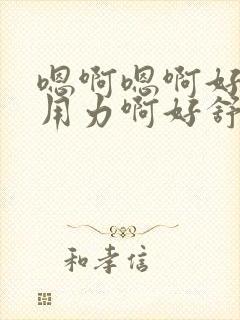 嗯啊嗯啊好
用力啊好舒
和孝信